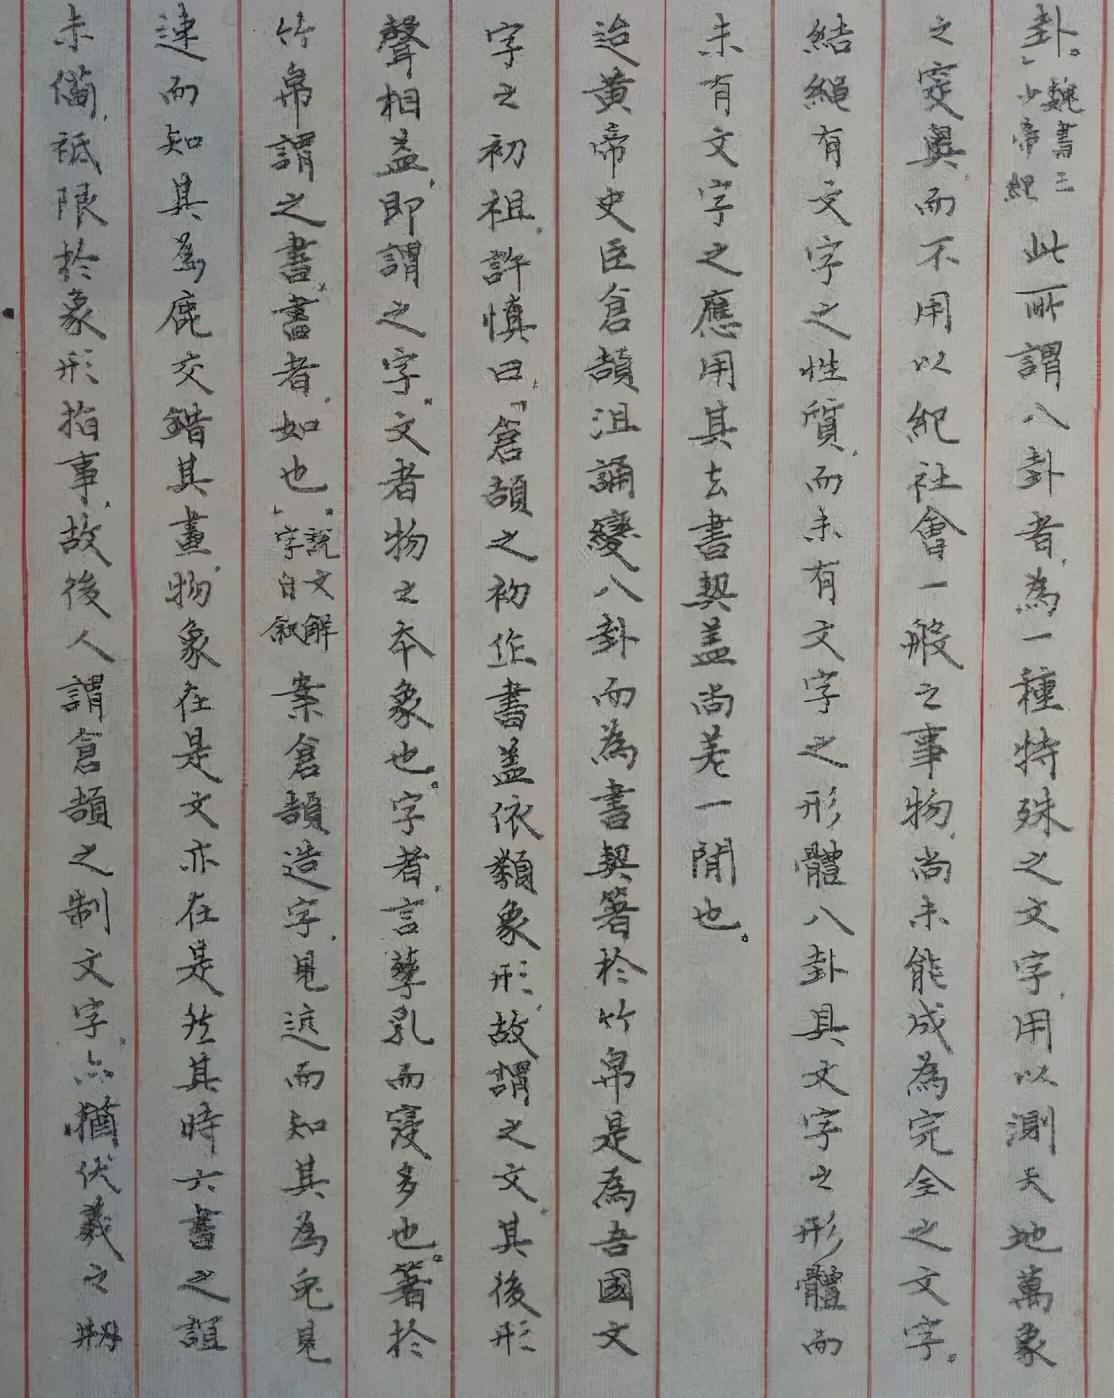 卦。」魏書三少帝紀 此所謂八卦者、為一種特殊之文字、用以測天地萬象
之窔奧、而不用以紀社會一般之事物、尚未能成為完全之文字。
結繩有文字之性質、而未有文字之形體八卦具文字之形體而
未有文字之應用其去書契蓋尚差一間也。
迨黃帝史臣倉頡沮誦變八卦而為書契箸於竹帛是為吾國文
字之初祖。許慎曰、「倉頡之初作書蓋依類象形、故謂之文。其後形
聲相益、即謂之字。文者物之本象也。字者、言孳乳而寖多也。箸於
竹帛謂之書、書者、如也。」說文解字自敘 案倉頡造字、見迒而知其為兔見
速而知其為鹿交錯其畫、物象在是文亦在是然其時六書之誼
未備、祗限於象形指事、故後人謂倉頡之制文字。亦猶伏羲之